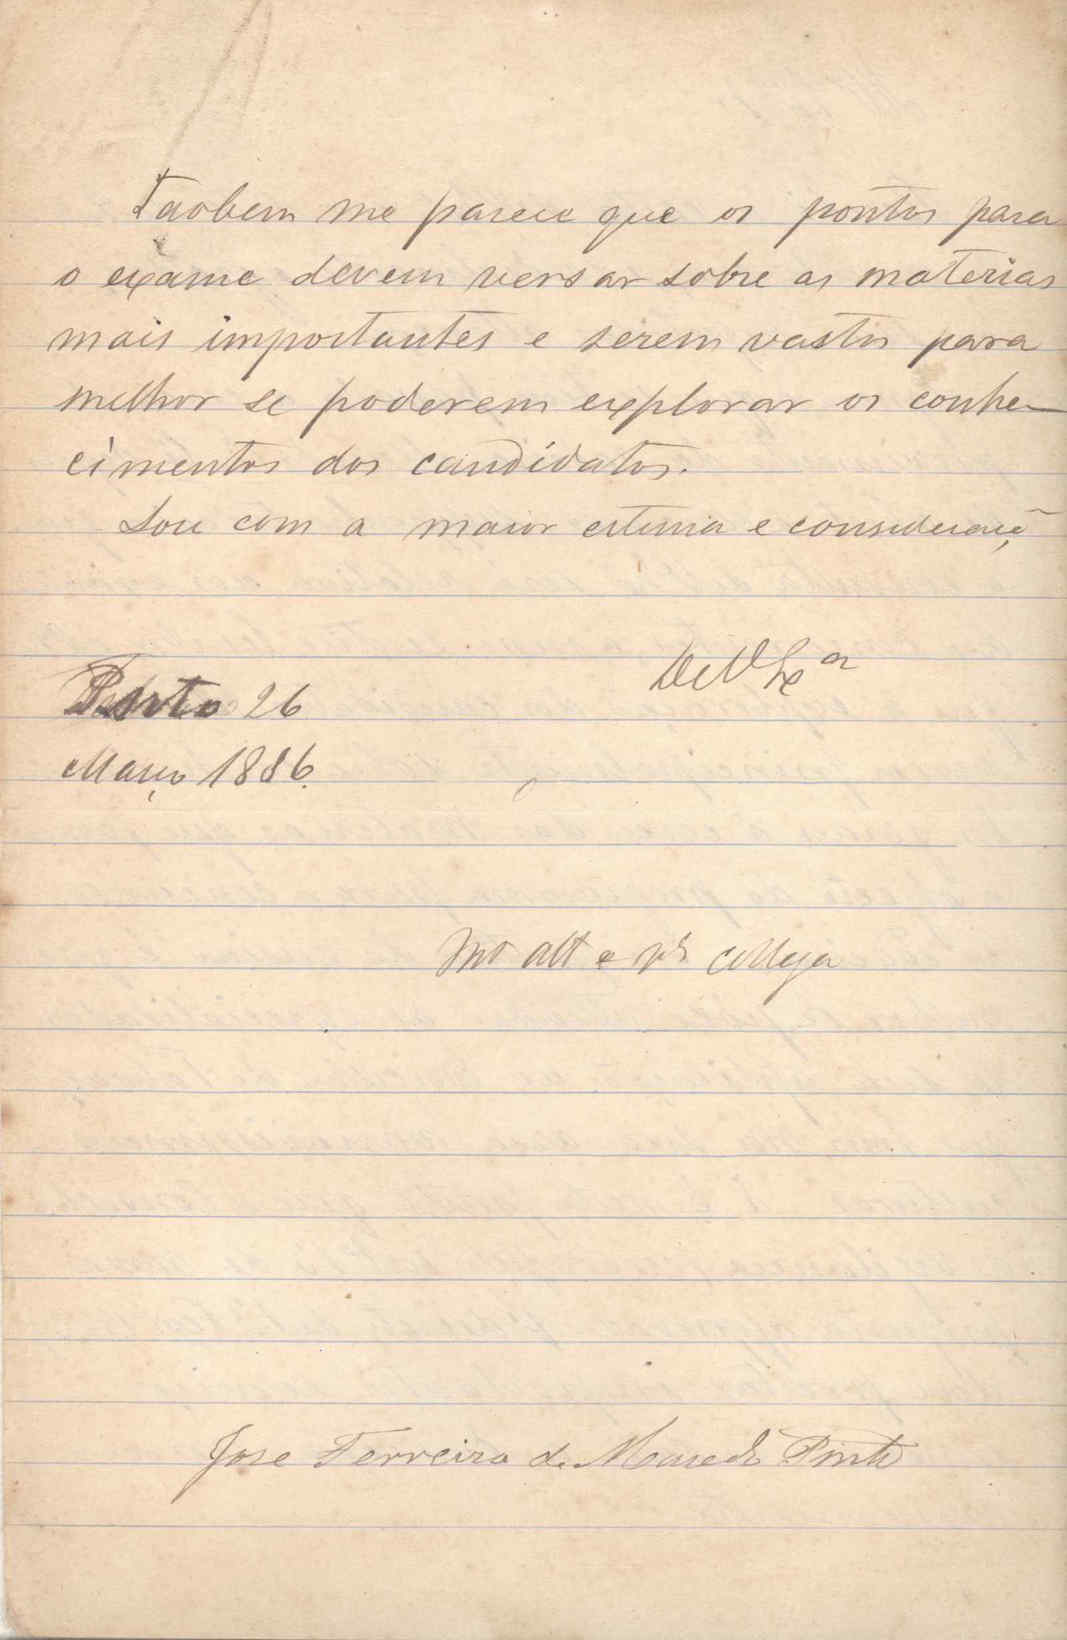 Taobem me parece que os pontos para
o exame devem versar sobre as materias
mais importantes e serem vastos para
melhor se poderem explorar os conhe-
cimentos dos candidatos.
Sou com a maior estima e consideraçã
De V Exª
Porto 26
Março 1886.
Mto att e collega
Jose Ferreira de Macedo Pinto